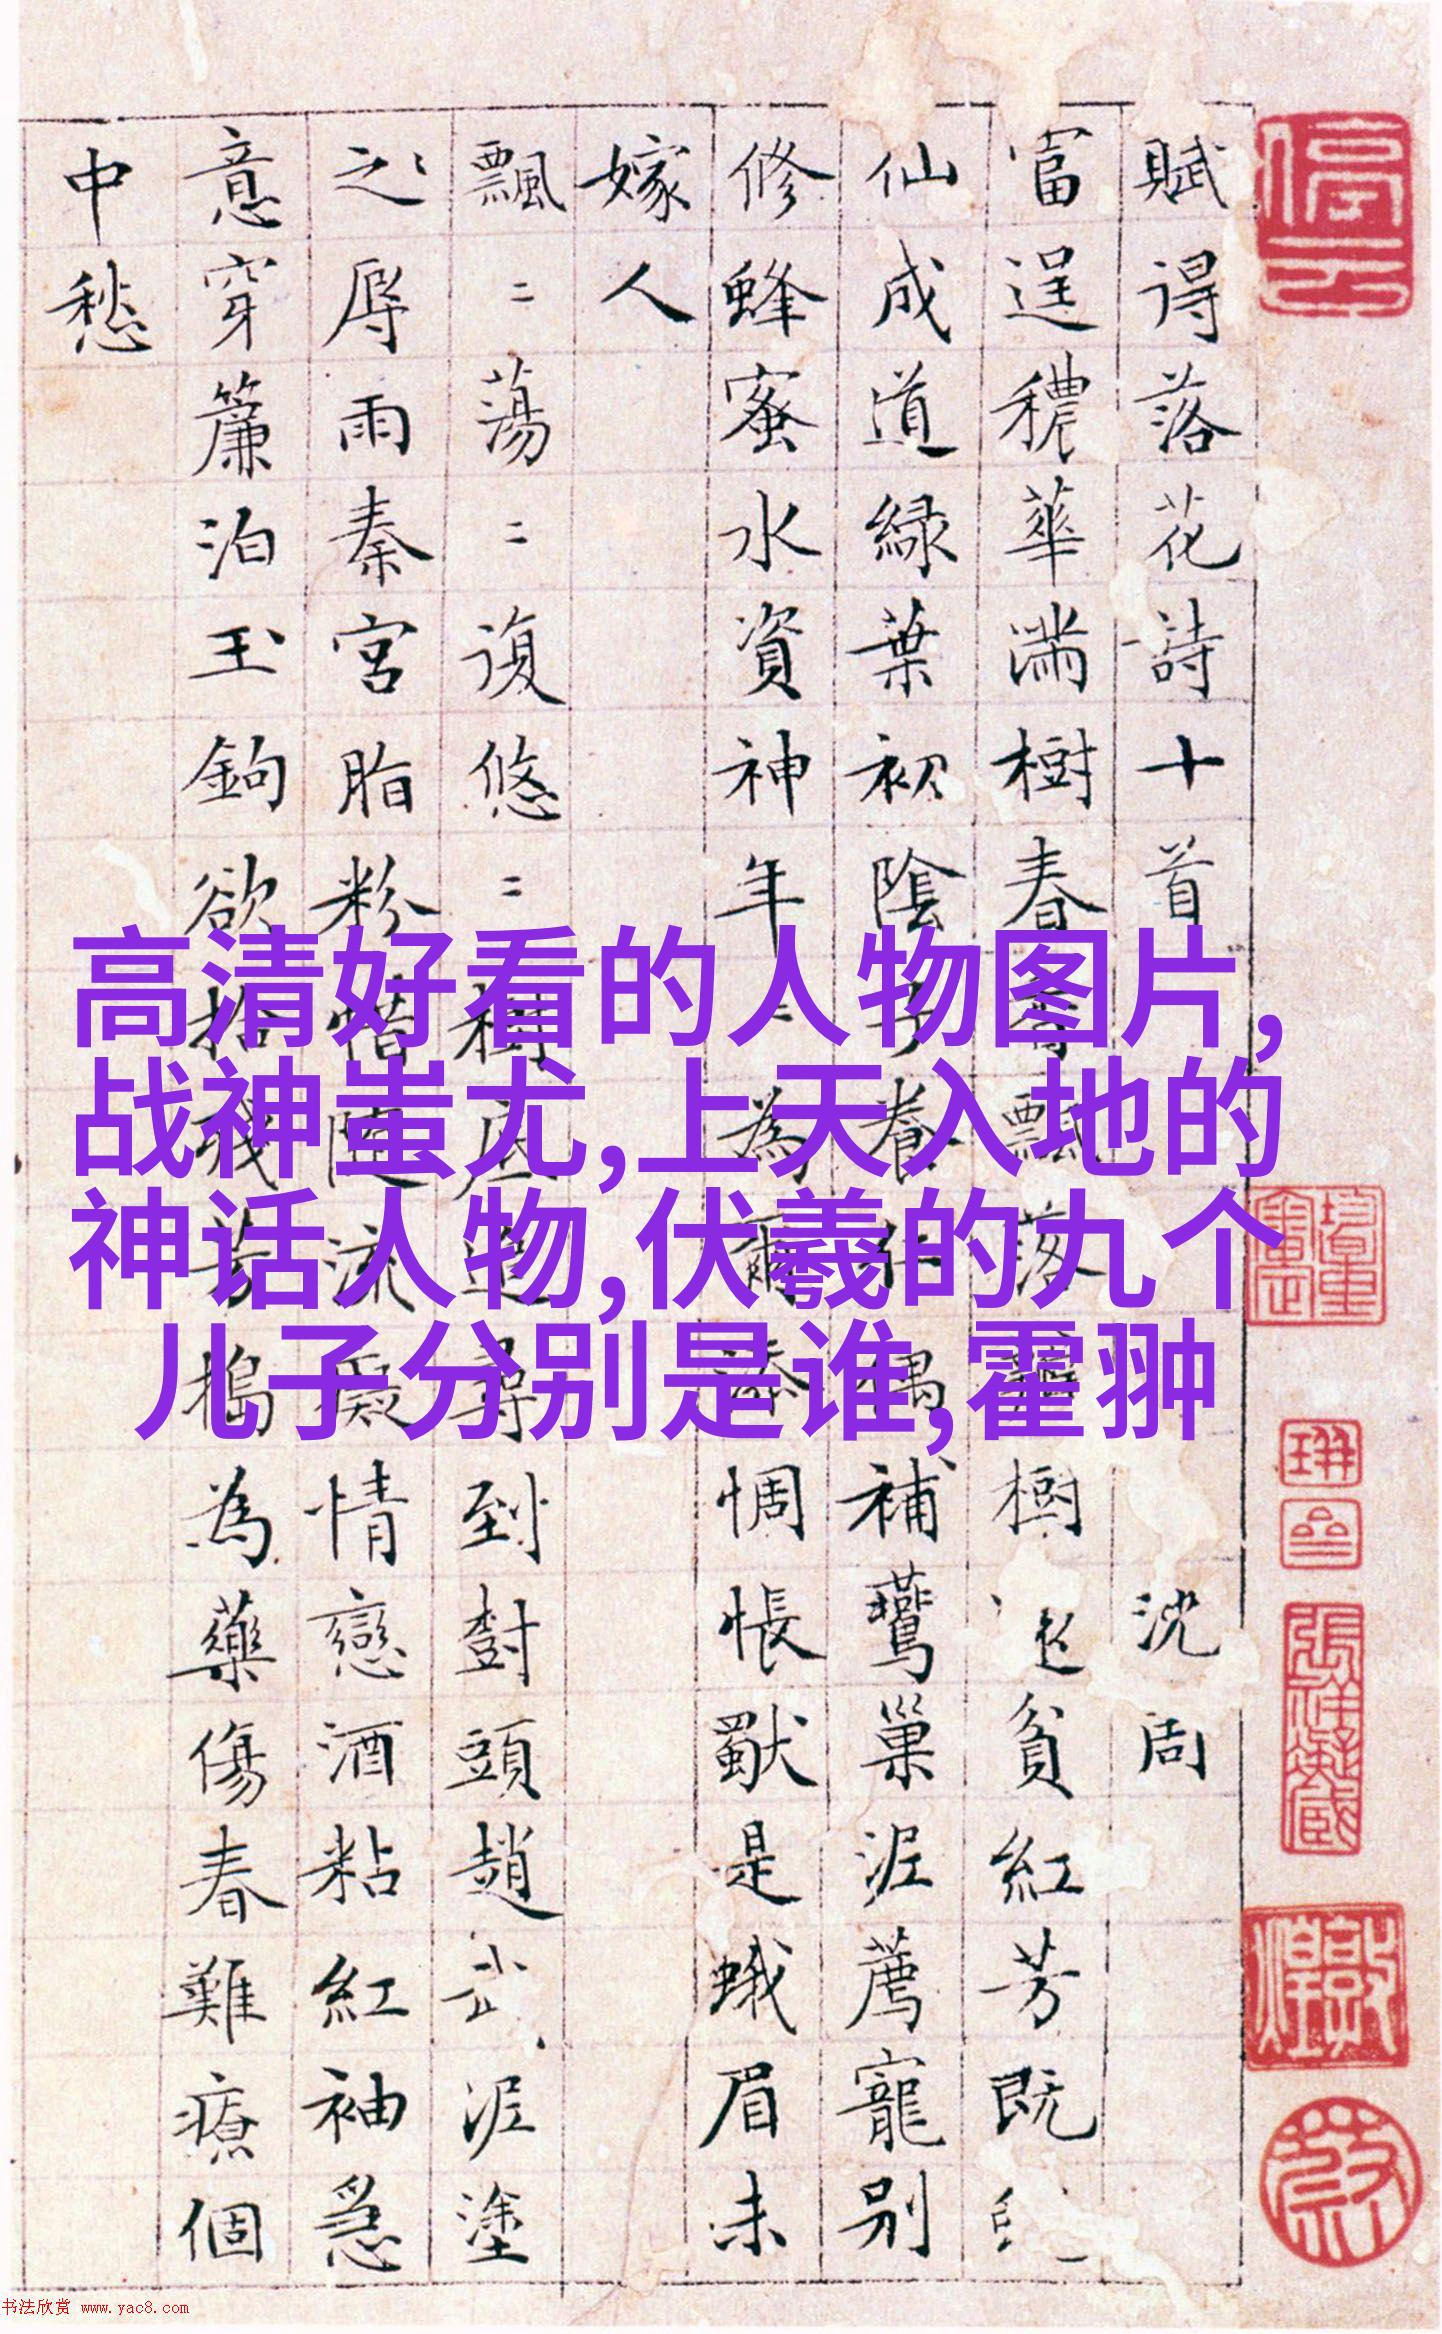 高清好看的人物图片,
战神蚩尤,上天入地的
神话人物,伏羲的九个
儿子分别是谁,霍翀
賦得落花詩十首 沈周
富逞穠華滿樹春香飄落瓣樹貧紅芳既
仙成道綠葉初陰子養仁偶補鶯巢泥薦寵別
修蜂蜜水資神年=為爾添惆悵獨是蛾眉未
嫁人
飄=蕩=復悠=樹底追尋到樹頭趙武泥塗
之辱雨秦宮脂粉惜隨流癡情戀酒粘紅袖急
意穿簾泊玉鉤欲拾殘芳搗為藥傷春難療個
中愁
停雲
书法欣赏 www.yac8.com